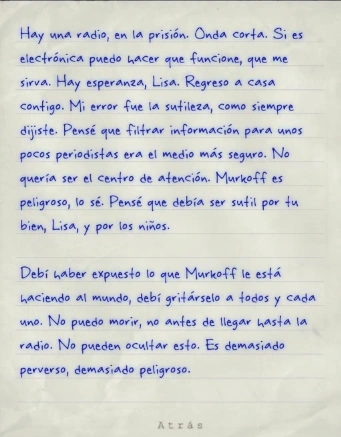 Hay una radio, en la prisión. Onda corta. Si es
electrónica puedo hacer que funcione, que me
sirva. Hay esperanza, Lisa. Regreso a casa
contigo. Mi error fue la sutileza, como siempre
dijiste. Pensé que filtrar información para unos
pocos periodistas era el medio más seguro. No
quería ser el centro de atención. Murkoff es
peligroso, lo sé. Pensé que debía ser sutil por tu
bien, Lisa, y por los niños.
Debí haber expuesto lo que Murkoff le está
haciendo al mundo, debí gritárselo a todos y cada
uno. No puedo morir, no antes de llegar hasta la
radio. No pueden ocultar esto. Es demasiado
perverso, demasiado peligroso.
Atrás